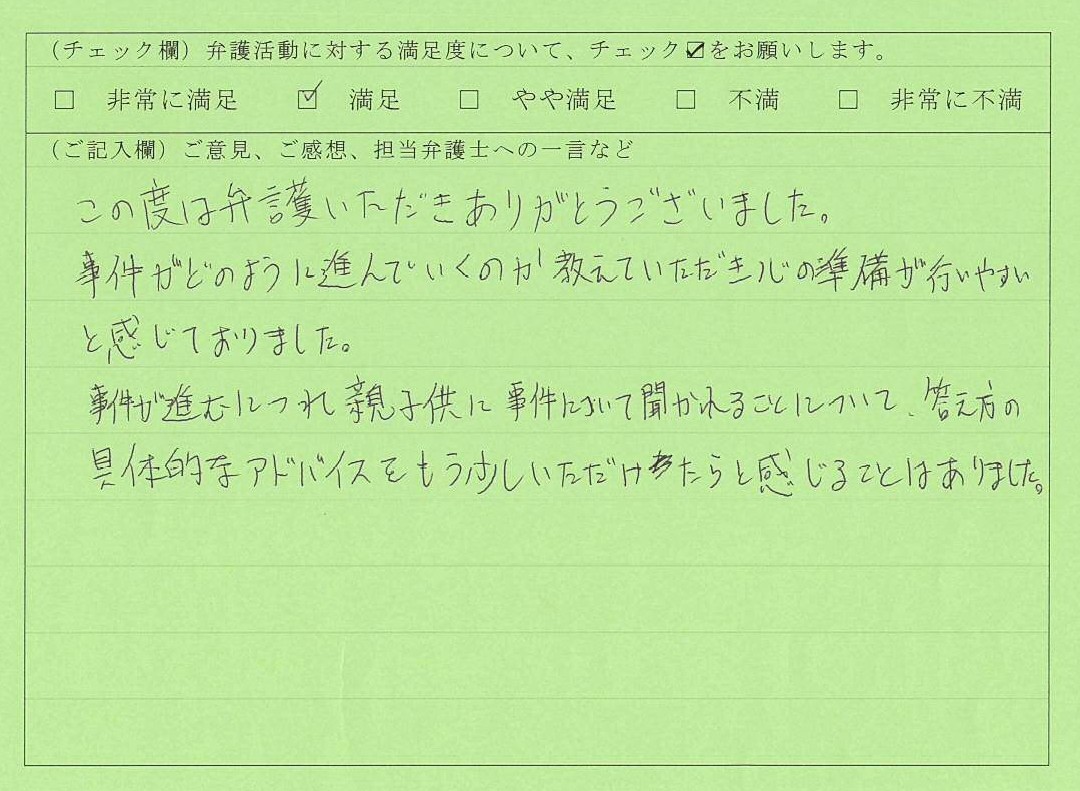 （チェック欄）弁護活動に対する満足度について、チェック☑をお願いします。
□ 非常に満足 ☑ 満足 □ やや満足 □ 不満 □ 非常に不満
（ご記入欄）ご意見、ご感想、担当弁護士への一言など
この度は弁護いただきありがとうございました。
事件がどのように進んでいくのか教えていただき心の準備が行いやすい
と感じておりました。
事件が進むにつれ親子供に事件において聞かれることについて、答え方の
具体的なアドバイスをもう少しいただけたらと感じることはありました。